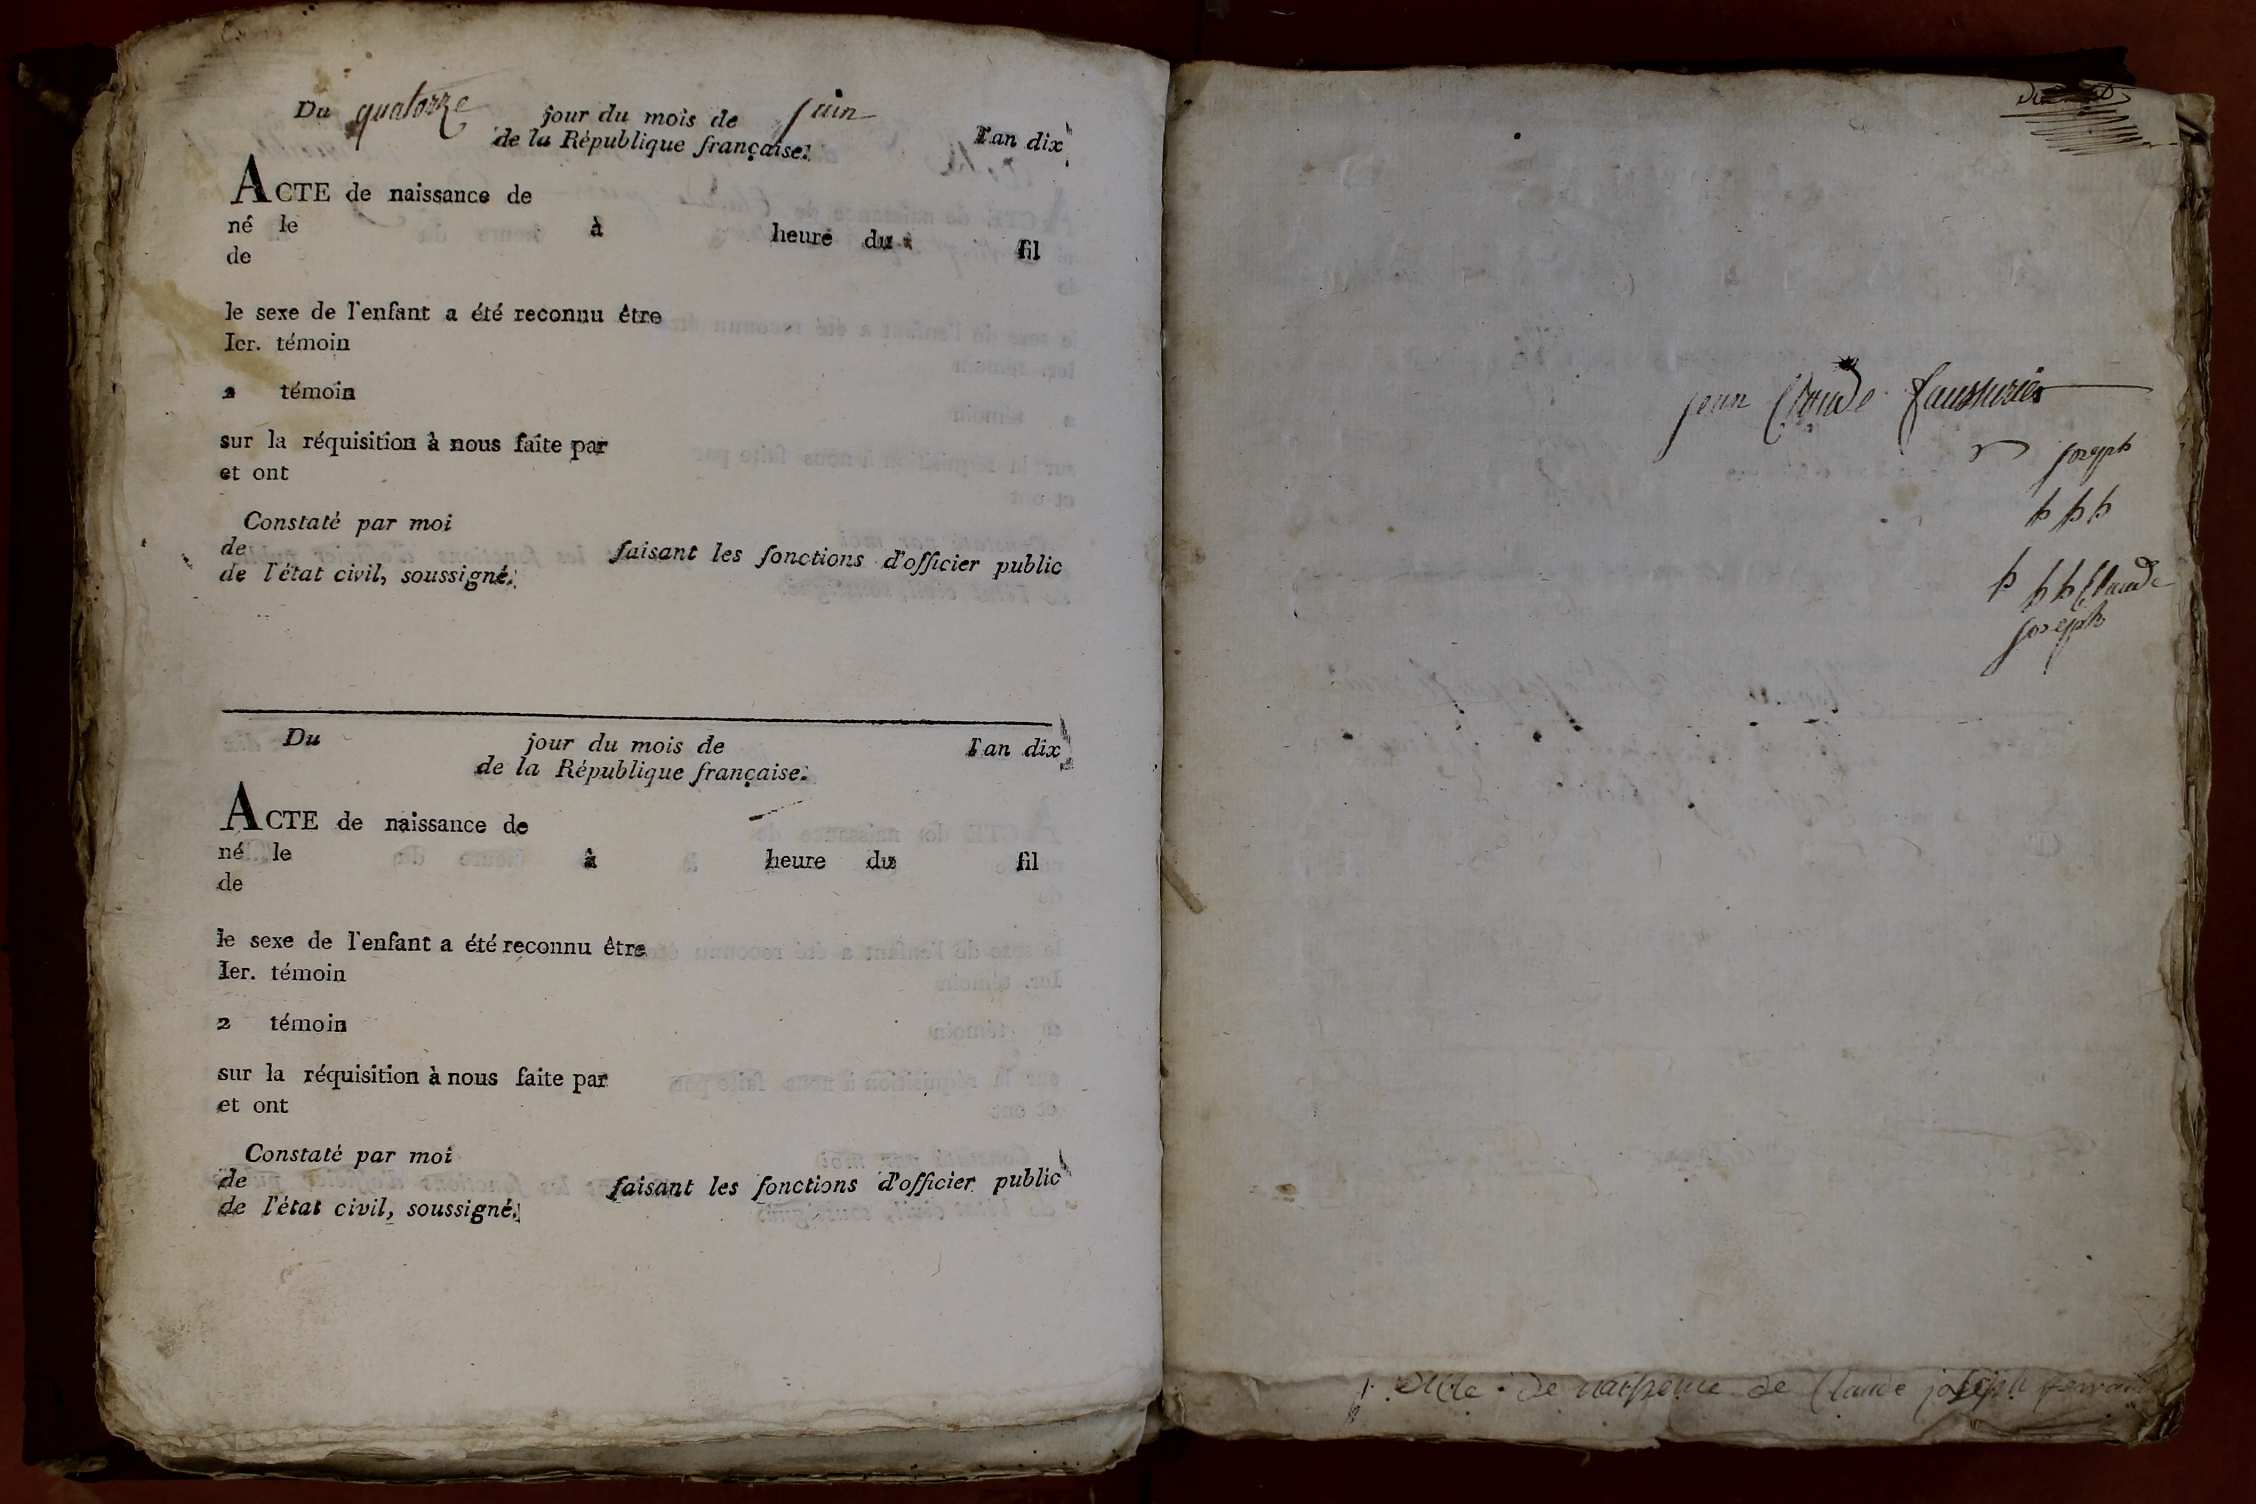 Du quatorze jour du mois de juin l'an dix
de la République française.
ACTE de naissance de
né le à heure du fil
de
le sexe de l'enfant a été reconnu être
Ier. témoin
2 témoin
sur la réquisition à nous faite par
et ont
Constaté par moi
de faisant les fonctions d'officier public
de l'état civil, soussigné.
Du jour du mois de l'an dix
de la République française.
ACTE de naissance de
né le à heure du fil
de
le sexe de l'enfant a été reconnu être
Ier. témoin
2 témoin
sur la réquisition à nous faite par
et ont
Constaté par moi
de faisant les fonctions d'officier public
de l'état civil, soussigné.
jean Claude
joseph
p p p
p p p Claude
joseph
de Claude joseph